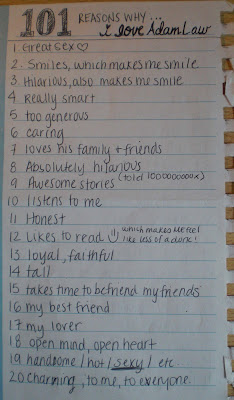 101 REASONS WHY...
I love Adam Law
1. Great sex ♡
2. Smiles, which makes me smile
3. Hilarious, also makes me smile
4 Really smart
5 too generous
6 caring
7 loves his family + friends
8 Absolutely hilarious
9 Awesome stories (told 1000000000x)
10 listens to me
11 Honest
12 Likes to read :) which makes me feel
like less of a dork!
13 loyal, faithful
14 tall
15 takes time to befriend my friends
16 my best friend
17 my lover
18 open mind, open heart
19 handsome / hot / sexy / etc..
20 charming, to me, to everyone